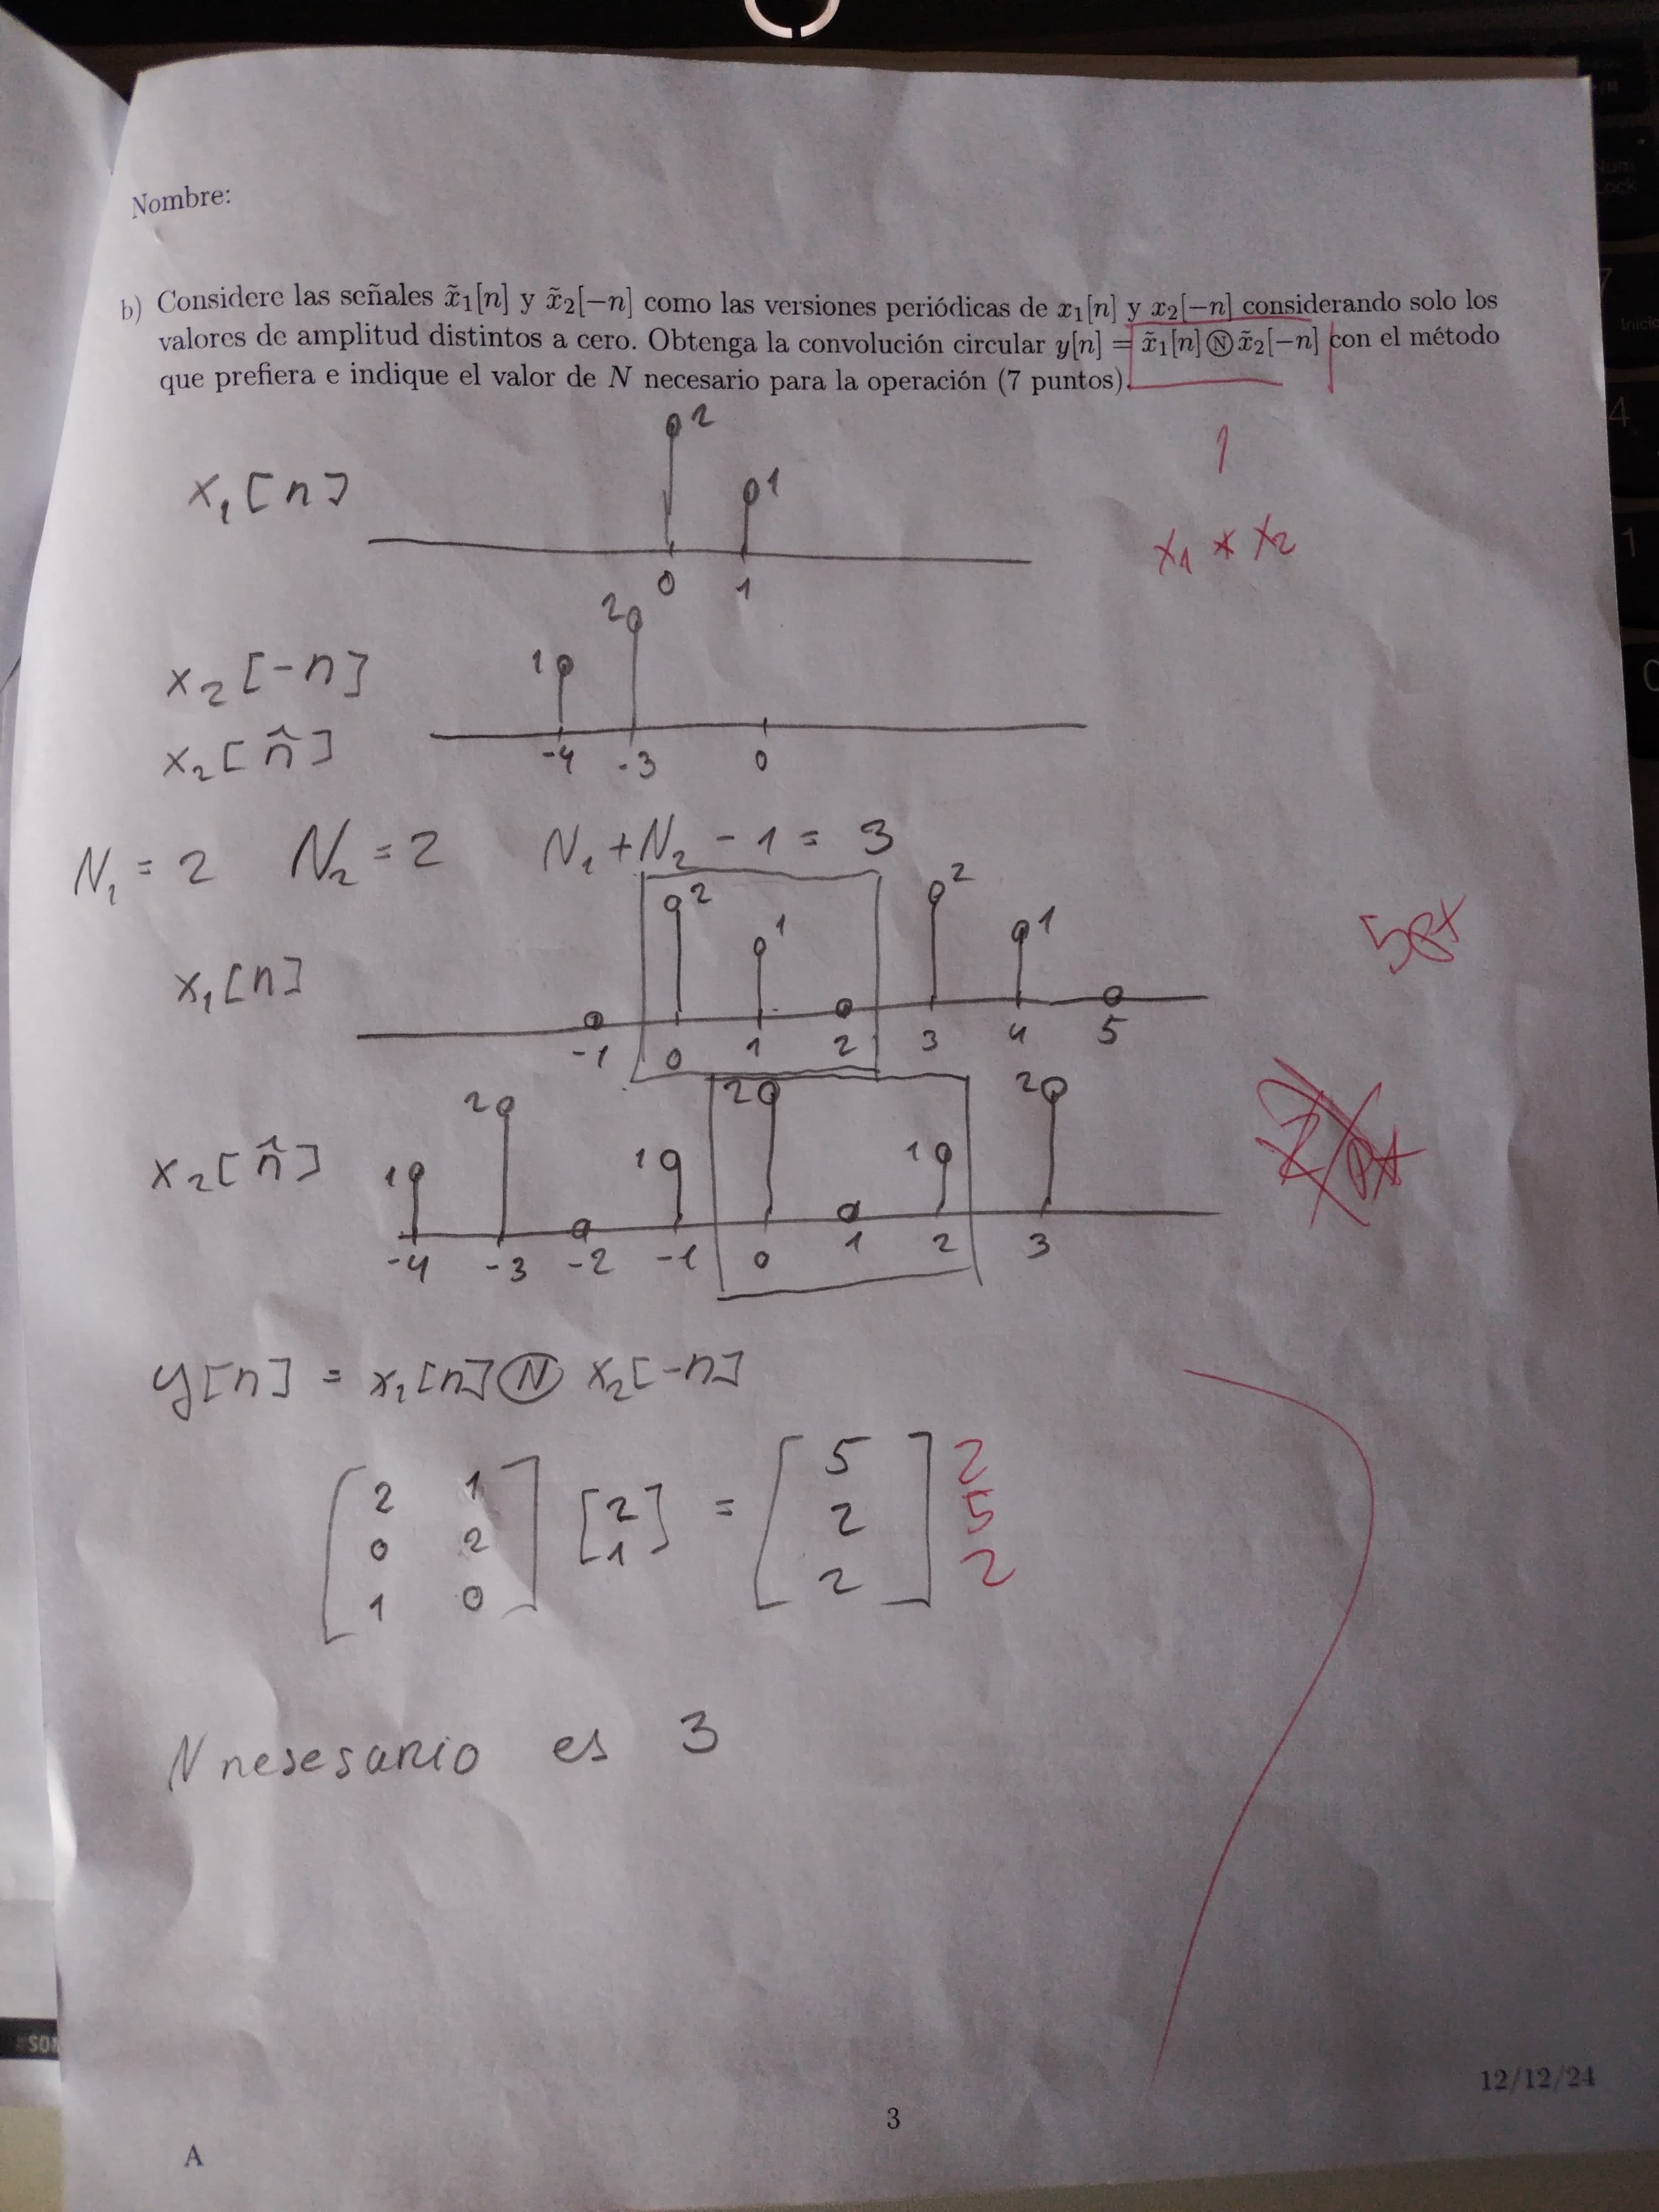 Nombre:
b) Considere las señales x̃₁[n] y x̃₂[−n] como las versiones periódicas de x₁[n] y x₂[−n] considerando solo los
valores de amplitud distintos a cero. Obtenga la convolución circular y[n] = x̃₁[n] Ⓝ x̃₂[−n] con el método
que prefiera e indique el valor de N necesario para la operación (7 puntos).
2
x₁[n] 1
1
x₁ * x₂
0 1
2
x₂[-n] 1
x₂[n̂]
-4 -3 0
N₁ = 2 N₂ = 2 N₁+N₂ - 1 = 3
2 1 2 1
5pt
x₁[n]
-1 0 1 2 3 4 5
2 2 2
x₂[n̂] 1 1 1
-4 -3 -2 -1 0 1 2 3
y[n] = x₁[n] Ⓝ x₂[-n]
2 1 5 2
0 2 [2 1] = 2 5
1 0 2 2
N nesesario es 3
12/12/24
3
A
Num
Lock
Inicio
7
4
1
0